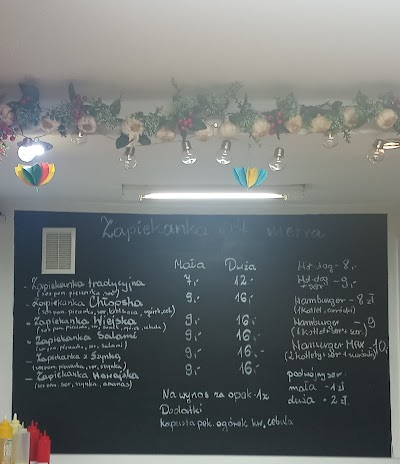 Zapiekanka pół metra
Mała Duża
- Zapiekanka tradycyjna 7,- 12.-
(sos pom. pieczarka, ser)
- Zapiekanka Chłopska 9.- 16.-
(sos pom. pieczarka, ser, kiełbasa, ogórek)
- Zapiekanka Wiejska 9.- 16.-
(sos pom. pieczarka, ser, cebula)
- Zapiekanka Salami 9.- 16.-
(sos pom. pieczarka, ser, salami)
- Zapiekanka z Szynką 9.- 16.-
(sos pom. pieczarka, ser, szynka)
- Zapiekanka Hawajska 9.- 16.-
(sos pom. ser, szynka, ananas)
Na wynos za opak. 1zł
Dodatki
kapusta pek. ogórek kw, cebula
Hot-dog - 8,-
Hot-dog - 9,-
+ ser
Hamburger - 8 zł
(1 kotlet, surówki)
Hamburger - 9
(1 kotlet + ser)
Hamburger Max - 10,-
(2 kotlety + ser + surówki)
podwójny ser:
mała - 1zł
duża - 2 zł